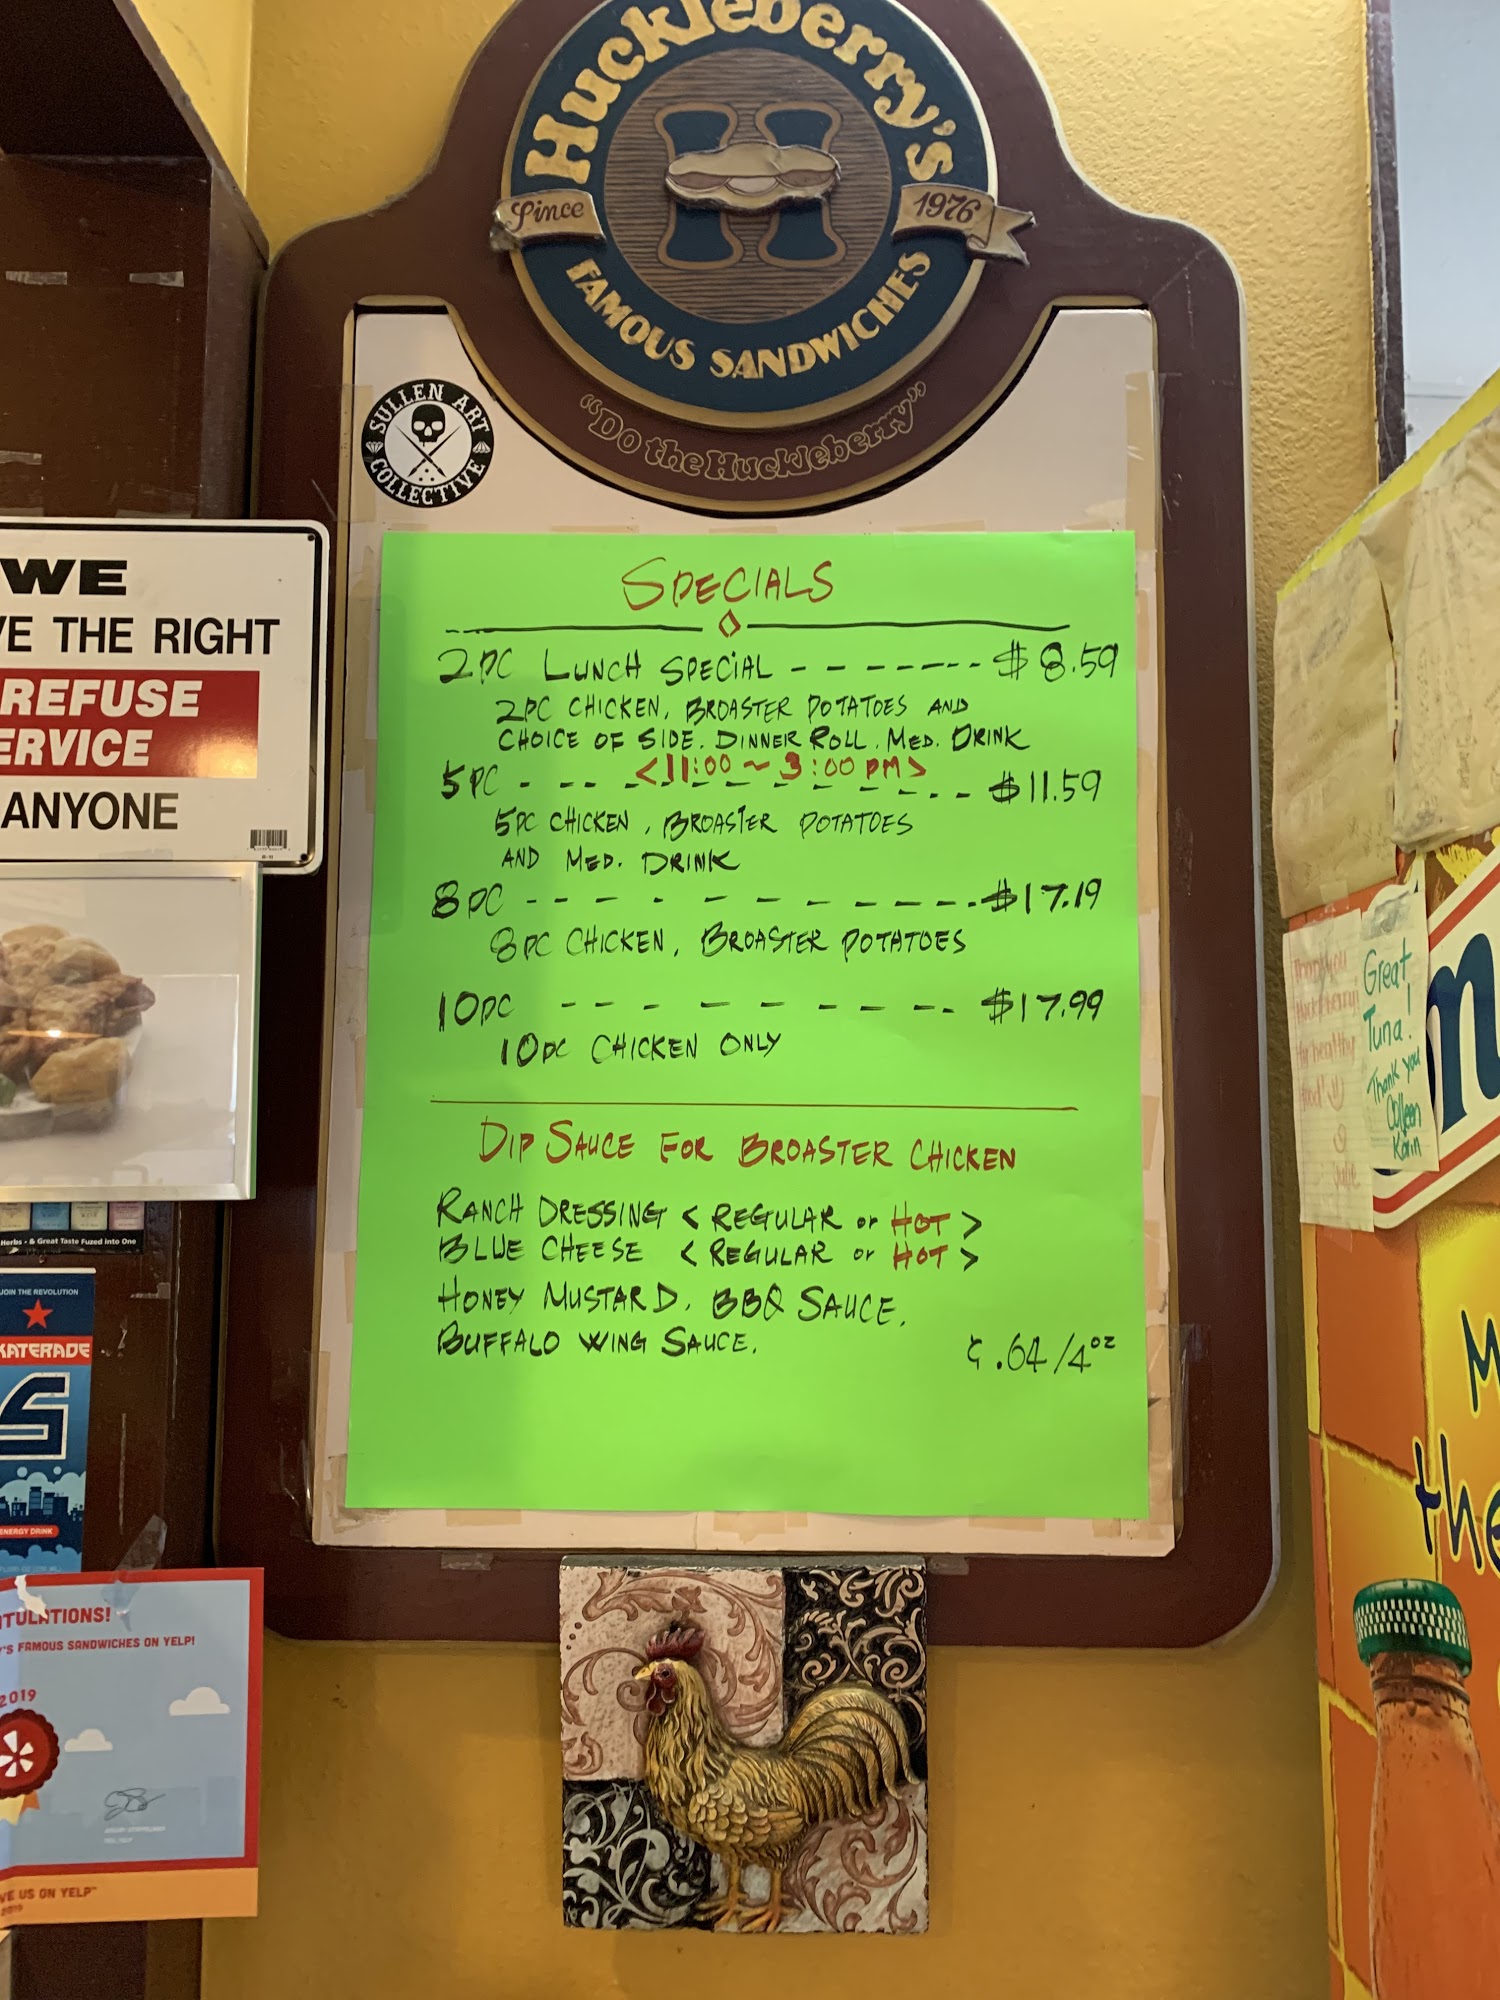 Huckleberry's
Since 1976
FAMOUS SANDWICHES
"Do the Huckleberry"
SULLEN ART
COLLECTIVE
SPECIALS
2PC LUNCH SPECIAL - - - - - - - $8.59
2PC CHICKEN, BROASTER POTATOES AND
CHOICE OF SIDE. DINNER ROLL. MED. DRINK
<11:00 ~ 3:00 PM>
5PC - - - - - - - - - - - - $11.59
5PC CHICKEN, BROASTER POTATOES
AND MED. DRINK
8PC - - - - - - - - - - - - $17.19
8PC CHICKEN, BROASTER POTATOES
10PC - - - - - - - - - $17.99
10PC CHICKEN ONLY
DIP SAUCE FOR BROASTER CHICKEN
RANCH DRESSING < REGULAR or HOT >
BLUE CHEESE < REGULAR or HOT >
HONEY MUSTARD. BBQ SAUCE.
BUFFALO WING SAUCE.
¢ .64/4oz
WE
VE THE RIGHT
REFUSE
ERVICE
ANYONE
Herbs - & Great Taste Fuzed into One
JOIN THE REVOLUTION
KATERADE
ENERGY DRINK
TULATIONS!
'S FAMOUS SANDWICHES ON YELP!
2019
VE US ON YELP
2019
Thank you
Huckleberry!
for healthy
food!
Julie
Great
Tuna!
Thank you
Colleen
Karin
n
M
the